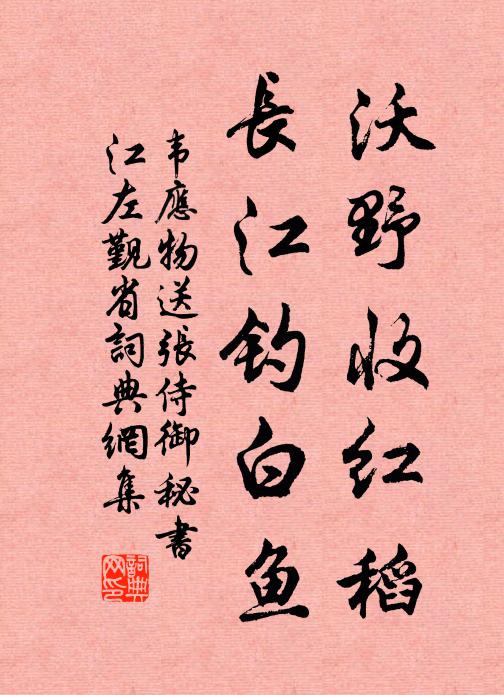 沃野收红稻
長江钓白鱼
韦應物送張侍御秘書
江左覲省詞典網集
詞典网印